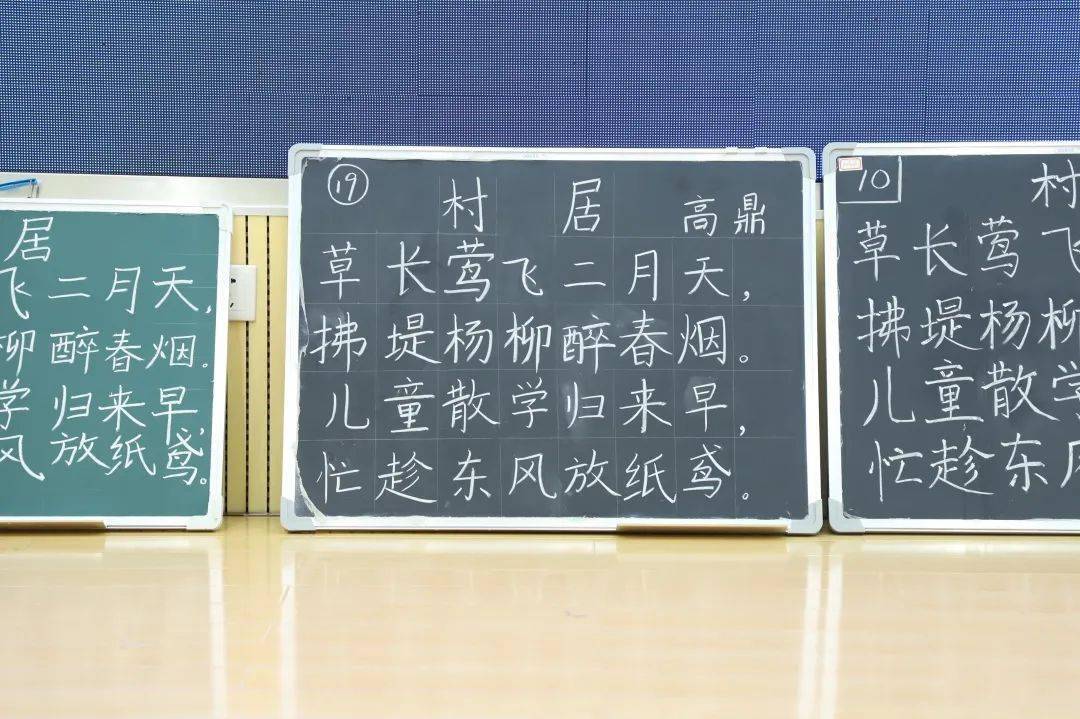 居
飞二月天，
柳醉春烟。
学归来早，
风放纸鸢。
19
村居 高鼎
草长莺飞二月天，
拂堤杨柳醉春烟。
儿童散学归来早，
忙趁东风放纸鸢。
10
村
草长莺飞
拂堤杨柳
儿童散学
忙趁东风